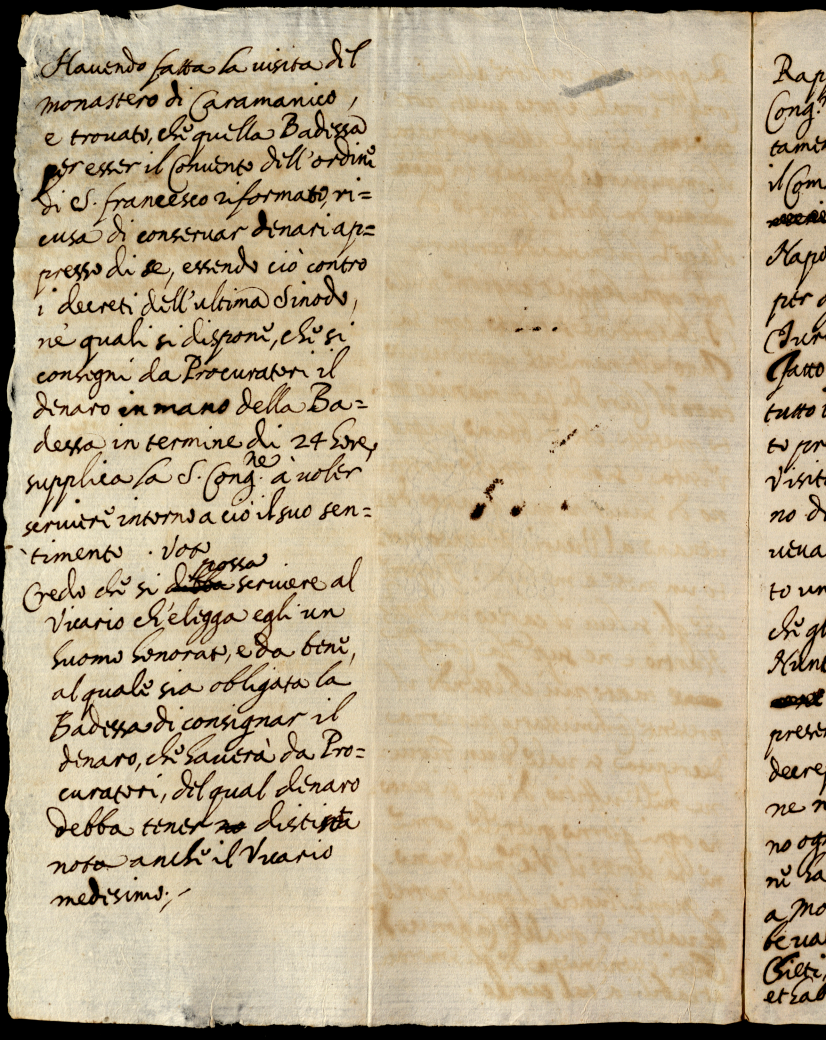 Havendo fatta la visita del
monastero di Caramanico,
e trovato, che quella Badessa
per esser il Convento dell'ordine
di S. francesco riformato, ri=
cusa di conservar denari ap=
presso di se, essendo ciò contro
i decreti dell'ultima Sinodo,
ne' quali si dispone, che si
consegni da Procuratori il
denaro in mano della Ba=
dessa in termine di 24 hore,
supplica la S. Cong.ne à voler
scrivere intorno a ciò il suo sen=
timento. Voto
Credo che si debba possa scrivere al
Vicario ch'elegga egli un
huomo honorato, e da bene,
al quale sia obligata la
Badessa di consignar il
denaro, che haverà da Pro=
curatori, del qual denaro
debba tener no distinta
nota anche il Vicario
medesimo;
Rap
Cong.
tamen
il Com
Napo
per
Jur
fatto
tutto i
to pr
Visit
no di
veva
to un
che gl
Nunt
presen
decre
ne n
no og
ne ha
a Mo
be va
Chieti,
et hab